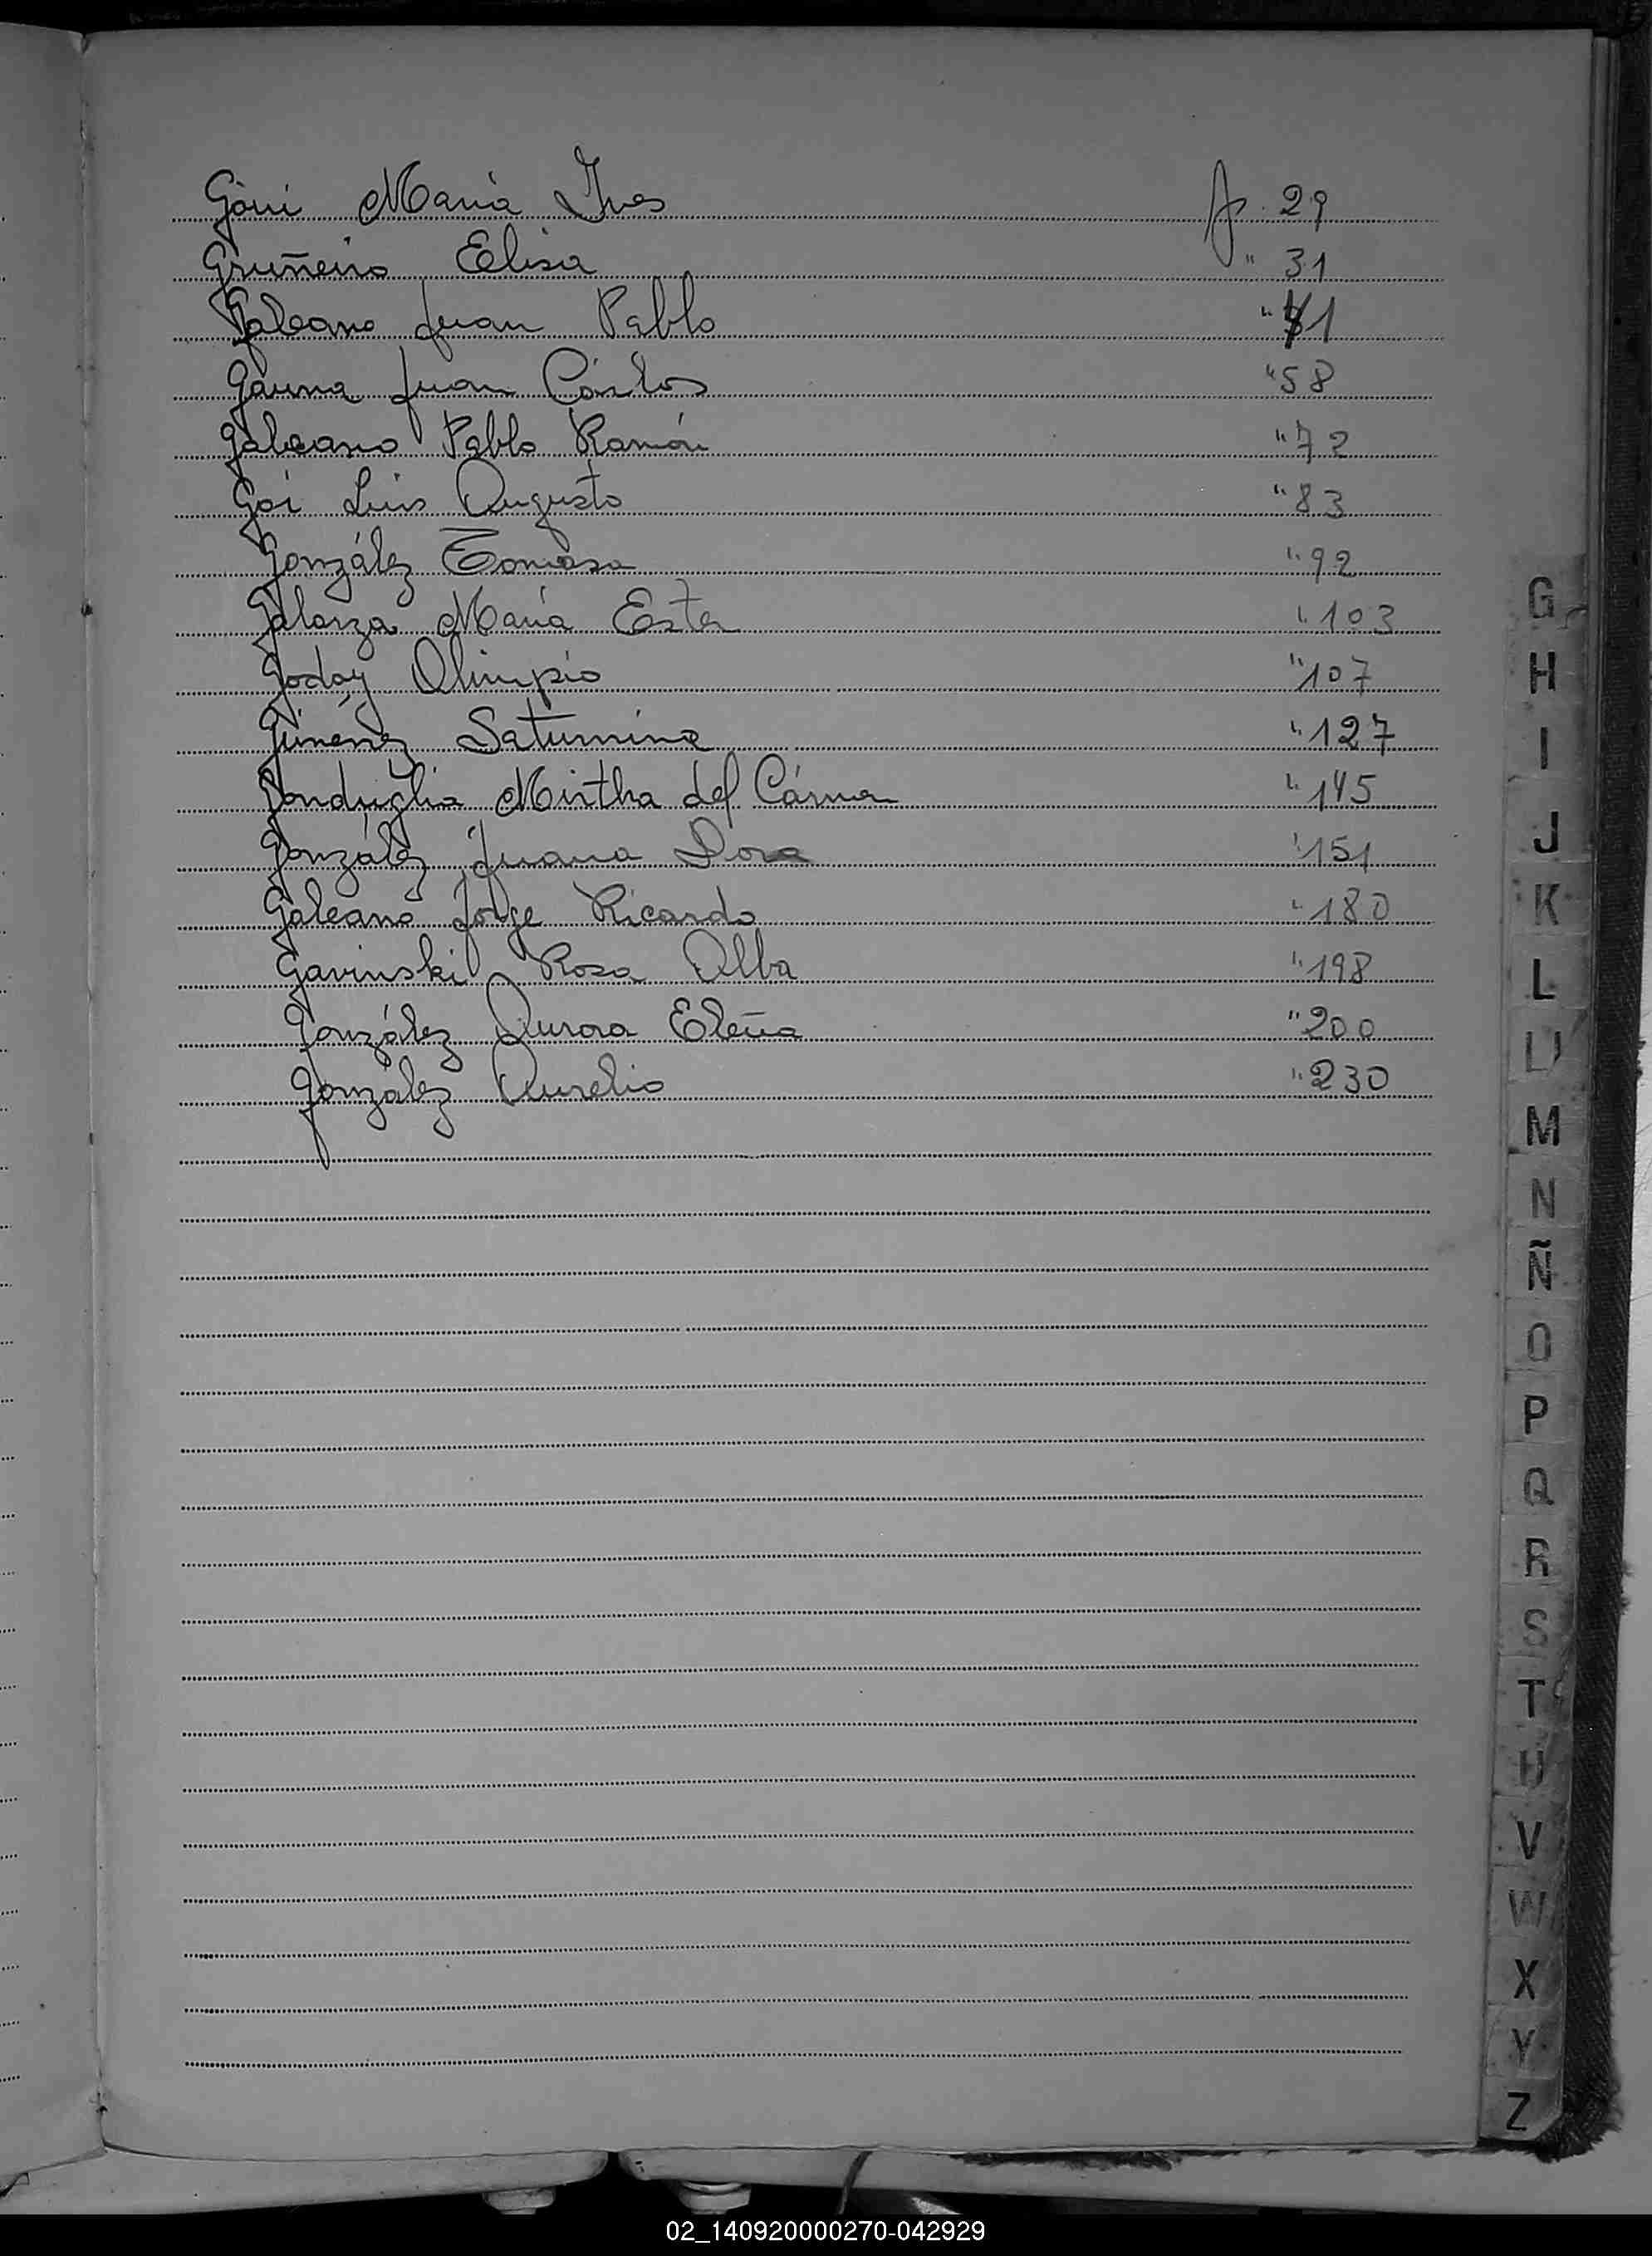 Góni María Ines fs 29
Gruñeiro Elisa " 31
Galeano Juan Pablo " 41
Gauna Juan Cárlos " 58
Galeano Pablo Ramón " 72
Goi Luis Augusto " 83
González Tomasa " 92
Galarza María Ester " 103
Godoy Olimpio " 107
Gimenez Saturnina " 127
Gonduglia Mirtha del Cármen " 145
González Juana Dora " 151
Galeano Jorge Ricardo " 180
Gavinski Rosa Alba " 198
González Aurora Elena " 200
González Aurelio " 230
G
H
I
J
K
L
LL
M
N
Ñ
O
P
Q
R
S
T
U
V
W
X
Y
Z
02_140920000270-042929